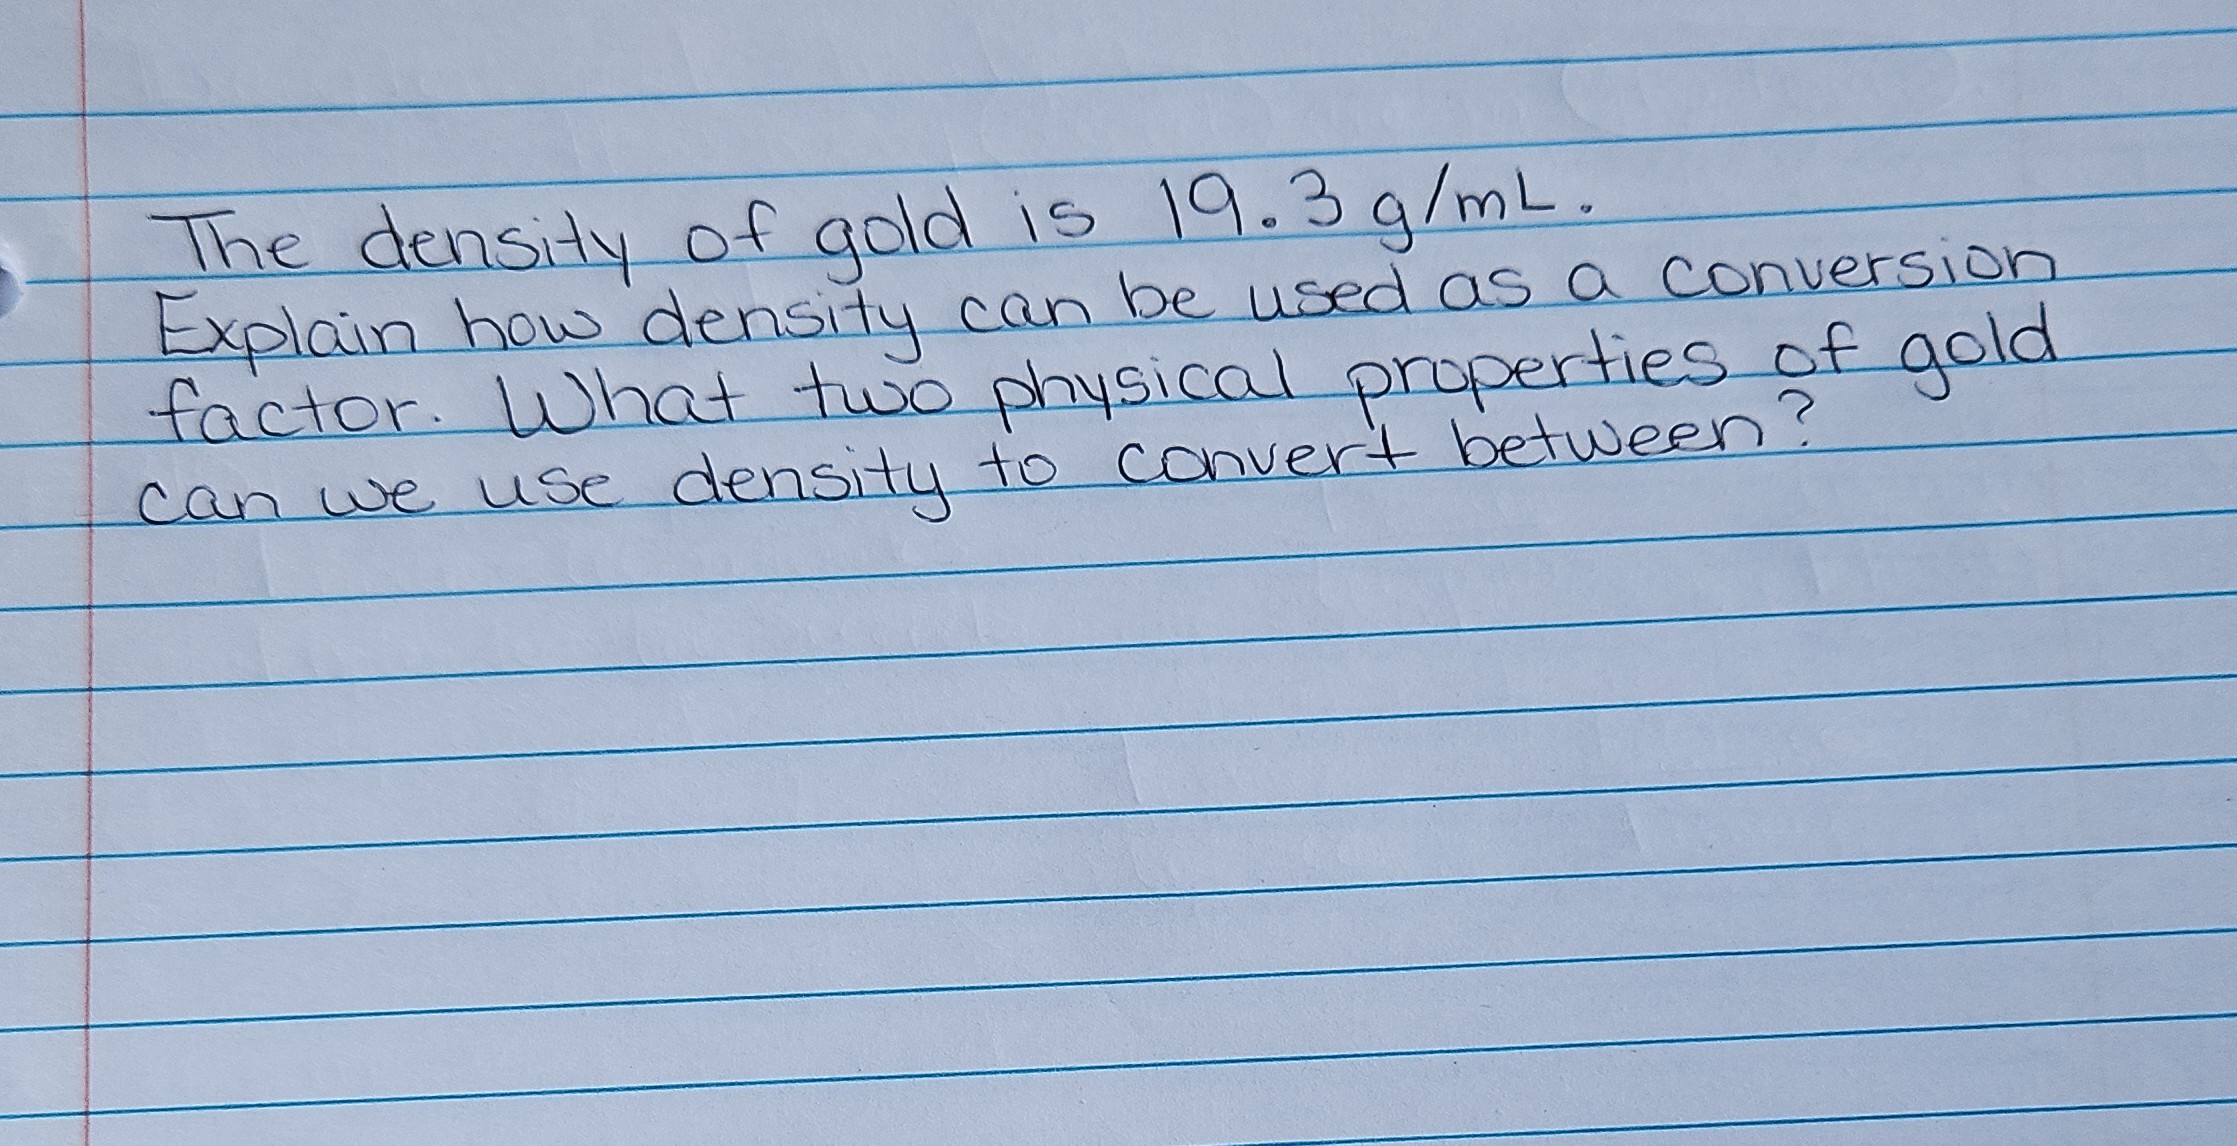 The density of gold is 19.3 g/mL.
Explain how density can be used as a conversion
factor. What two physical properties of gold
can we use density to convert between?